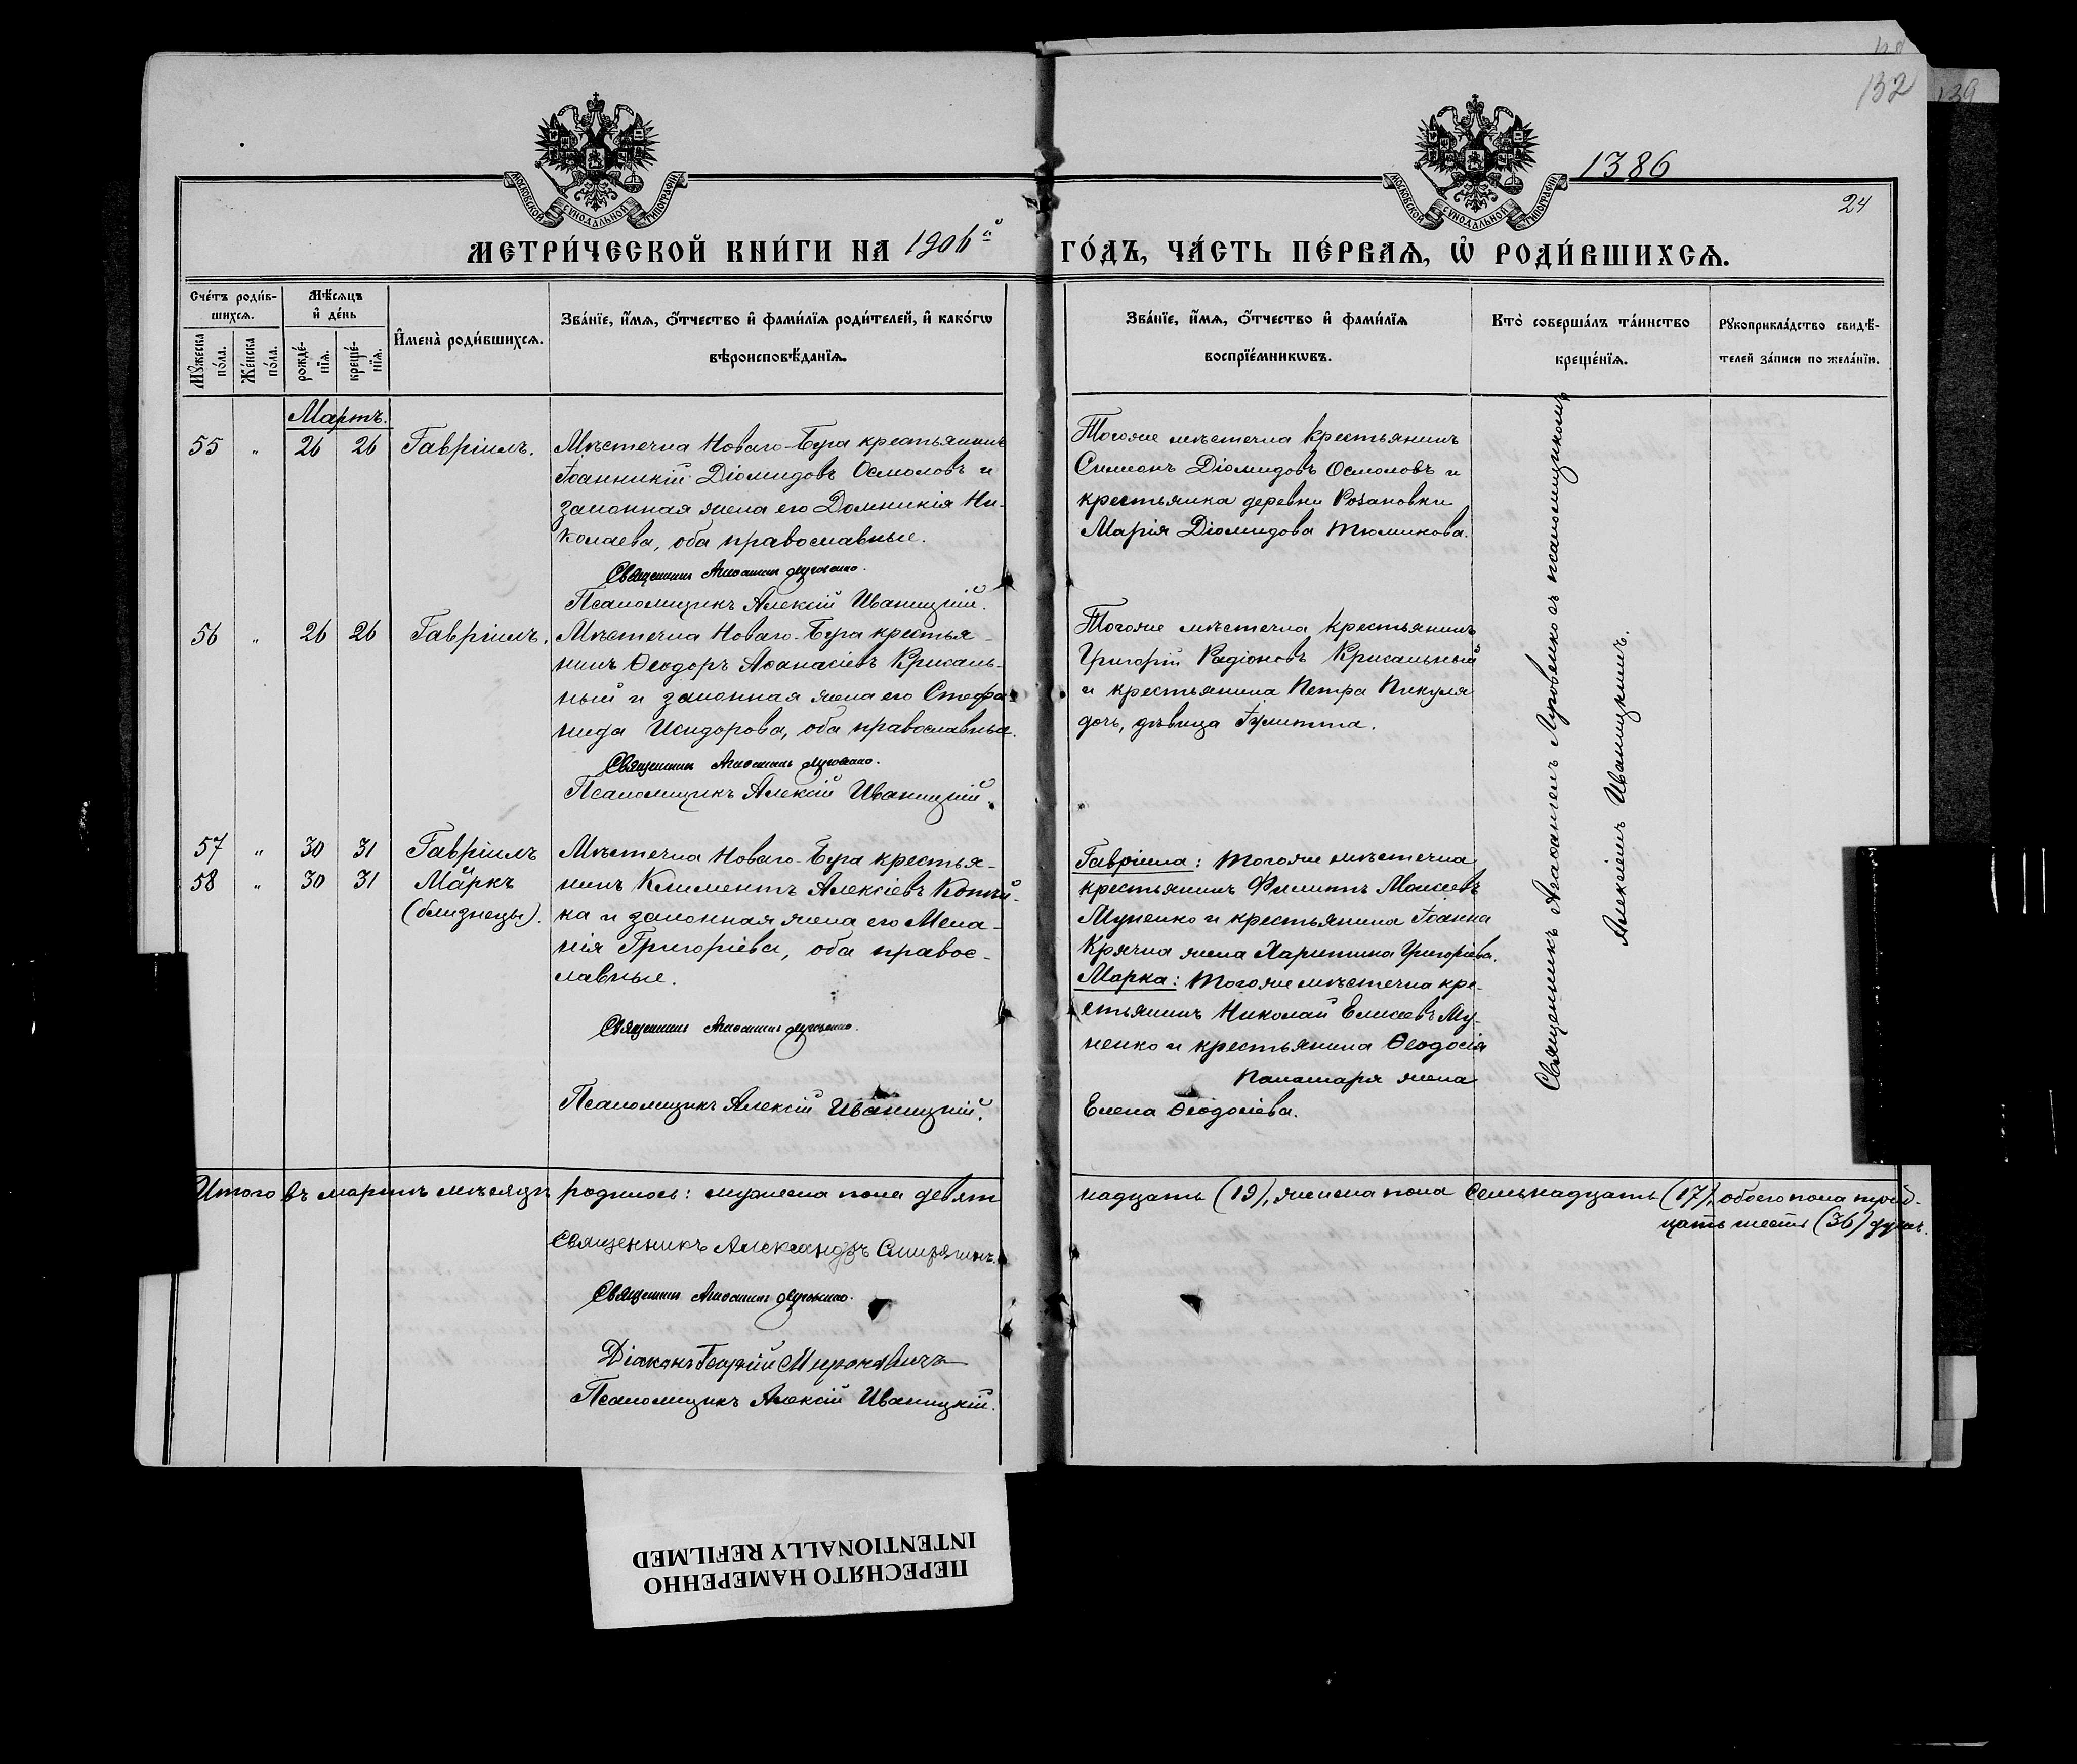 132
139
1386
24
МОСКОВСКОЙ СѴНОДАЛЬНОЙ ТИПОГРАФІИ
МОСКОВСКОЙ СѴНОДАЛЬНОЙ ТИПОГРАФІИ
МЕТРИ́ЧЕСКОЙ КНИ́ГИ НА 1906й ГО́ДЪ, ЧА́СТЬ ПЕ́РВАѦ, Ѡ҆ РОДИ́ВШИХСѦ.
Сче́тъ роди́в-
шихсѧ.
Мꙋжеска по́ла.
Же́нска по́ла.
Мѣ́сѧцъ и҆ де́нь
рожде́-нїѧ.
креще́-нїѧ.
И҆мена̀ роди́вшихсѧ.
Зва́нїе, и҆́мѧ, ѻ҆́тчество и҆ фами́лїѧ роди́телей, и҆ како́гѡ
вѣроисповѣ́данїѧ.
Зва́нїе, и҆́мѧ, ѻ҆́тчество и҆ фами́лїѧ
воспрїе́мникѡвъ.
Кто̀ соверша́лъ та́инство
креще́нїѧ.
Рꙋкоприкла́дство свидѣ́-
телей за́писи по жела́нїю.
Мартъ.
55 " 26 26 Гавріилъ.
Мѣстечка Новаго-Буга крестьянинъ
Іоанникій Діомидовъ Осмоловъ и
законная жена его Домникія Ни-
колаева, оба православные.
Священникъ Агаѳангелъ Луговенко.
Псаломщикъ Алексій Иваницкій.
Тогоже мѣстечка крестьянинъ
Симеонъ Діомидовъ Осмоловъ и
крестьянка деревни Розановки
Марія Діомидова Тюмикова.
56 " 26 26 Гавріилъ.
Мѣстечка Новаго-Буга крестья-
нинъ Ѳеодоръ Аѳанасіевъ Крисаль-
ный и законная жена его Стефа-
нида Исидорова, оба православные.
Священникъ Агаѳангелъ Луговенко.
Псаломщикъ Алексій Иваницкій.
Тогоже мѣстечка крестьянинъ
Григорій Радіоновъ Крисальный
и крестьянина Петра Пикуля
дочь, дѣвица Іулитта.
57 " 30 31 Гавріилъ
58 " 30 31 Маркъ
(близнецы).
Мѣстечка Новаго-Буга крестья-
нинъ Климентъ Алексіевъ Котый-
ка и законная жена его Мела-
нія Григоріева, оба право-
славные.
Священникъ Агаѳангелъ Луговенко.
Псаломщикъ Алексій Иваницкій.
Гавріила: тогоже мѣстечка
крестьянинъ Филиппъ Моисеевъ
Мупенко и крестьянина Іоанна
Крячка жена Харитина Григоріева.
Марка: тогоже мѣстечка кре-
стьянинъ Николай Елисеевъ Му-
пенко и крестьянина Ѳеодосія
Паламаря жена
Елена Ѳеодосіева.
Священникъ Агаѳангелъ Луговенко съ псаломщикомъ
Алексіемъ Иваницкимъ.
Итого въ мартѣ мѣсяцѣ родилось: мужеска пола девят
надцать (19), женска пола семьнадцать (17), обоего пола трид-
цать шесть (36) душъ.
Священникъ Александръ
Священникъ Агаѳангелъ Луговенко.
Діаконъ Георгій Мироновичъ
Псаломщикъ Алексій Иваницкій.
ПЕРЕСНЯТО НАМЕРЕННО
INTENTIONALLY REFILMED